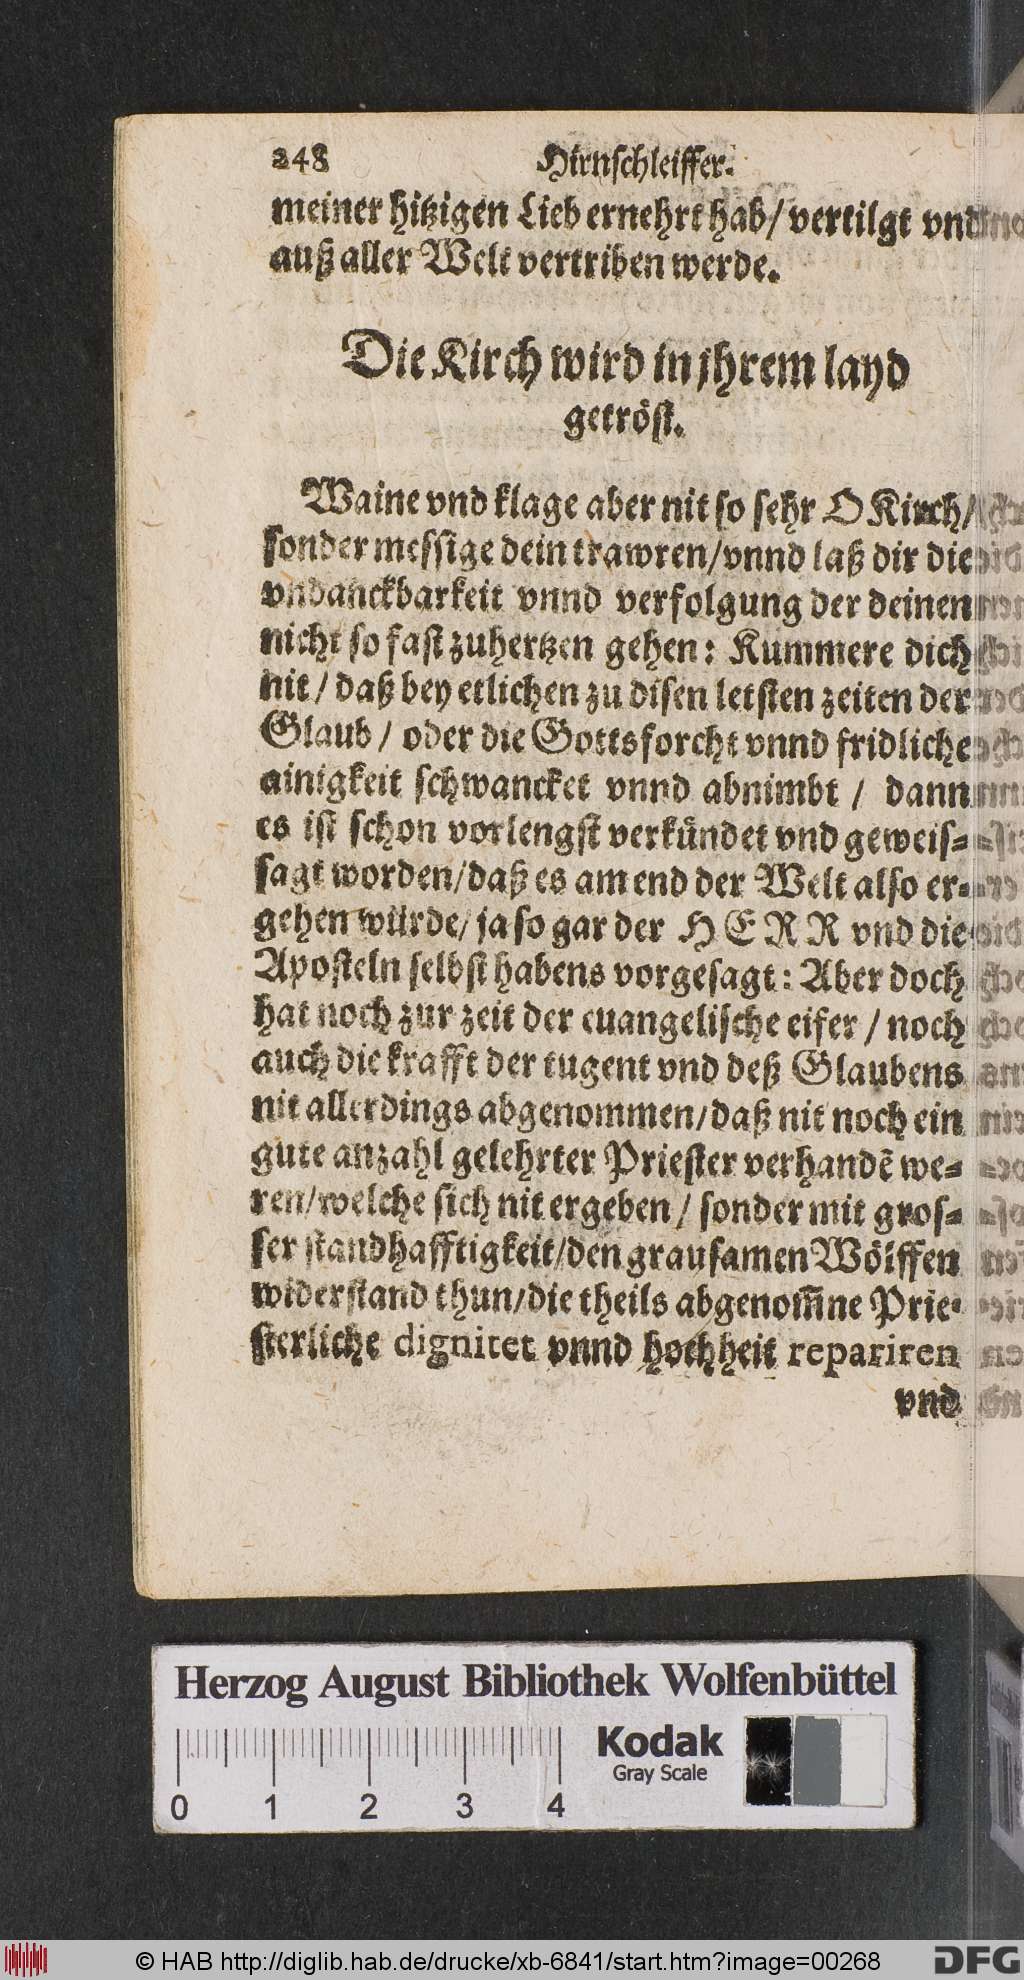 248 Hirnschleiffer.
meiner hitzigen Lieb ernehrt hab/ vertilgt vnd
auß aller Welt vertriben werde.
Die Kirch wird in jhrem layd
getröst.
Waine vnd klage aber nit so sehr O Kirch/
sonder messige dein trawren/ vnnd laß dir die
vndanckbarkeit vnnd verfolgung der deinen
nicht so fast zuhertzen gehen: Kummere dich
nit / daß bey etlichen zu disen letsten zeiten der
Glaub / oder die Gottsforcht vnnd fridliche
ainigkeit schwancket vnnd abnimbt / dann
es ist schon vorlengst verkündet vnd geweis-
sagt worden/daß es am end der Welt also er-
gehen würde/ ja so gar der HERR vnd die
Aposteln selbst habens vorgesagt: Aber doch
hat noch zur zeit der euangelische eifer / noch
auch die krafft der tugent vnd deß Glaubens
nit allerdings abgenommen/daß nit noch ein
gute anzahl gelehrter Priester verhandẽ we-
ren/welche sich nit ergeben / sonder mit gros-
ser standhafftigkeit/den grausamen Wölffen
widerstand thun/die theils abgenom̃ne Prie-
sterliche dignitet vnnd hochheit repariren
vnd
Herzog August Bibliothek Wolfenbüttel
Kodak
Gray Scale
0 1 2 3 4
© HAB http://diglib.hab.de/drucke/xb-6841/start.htm?image=00268
DFG